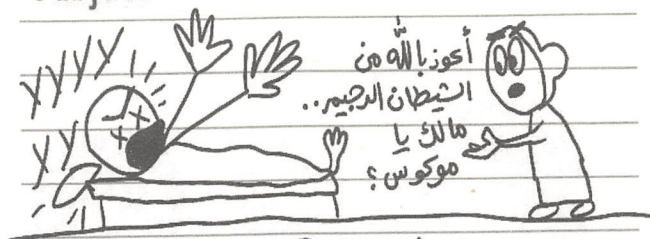 أعوذ بالله من
الشيطان الرجيم..
مالك يا
موكوس؟
YYYY
YY